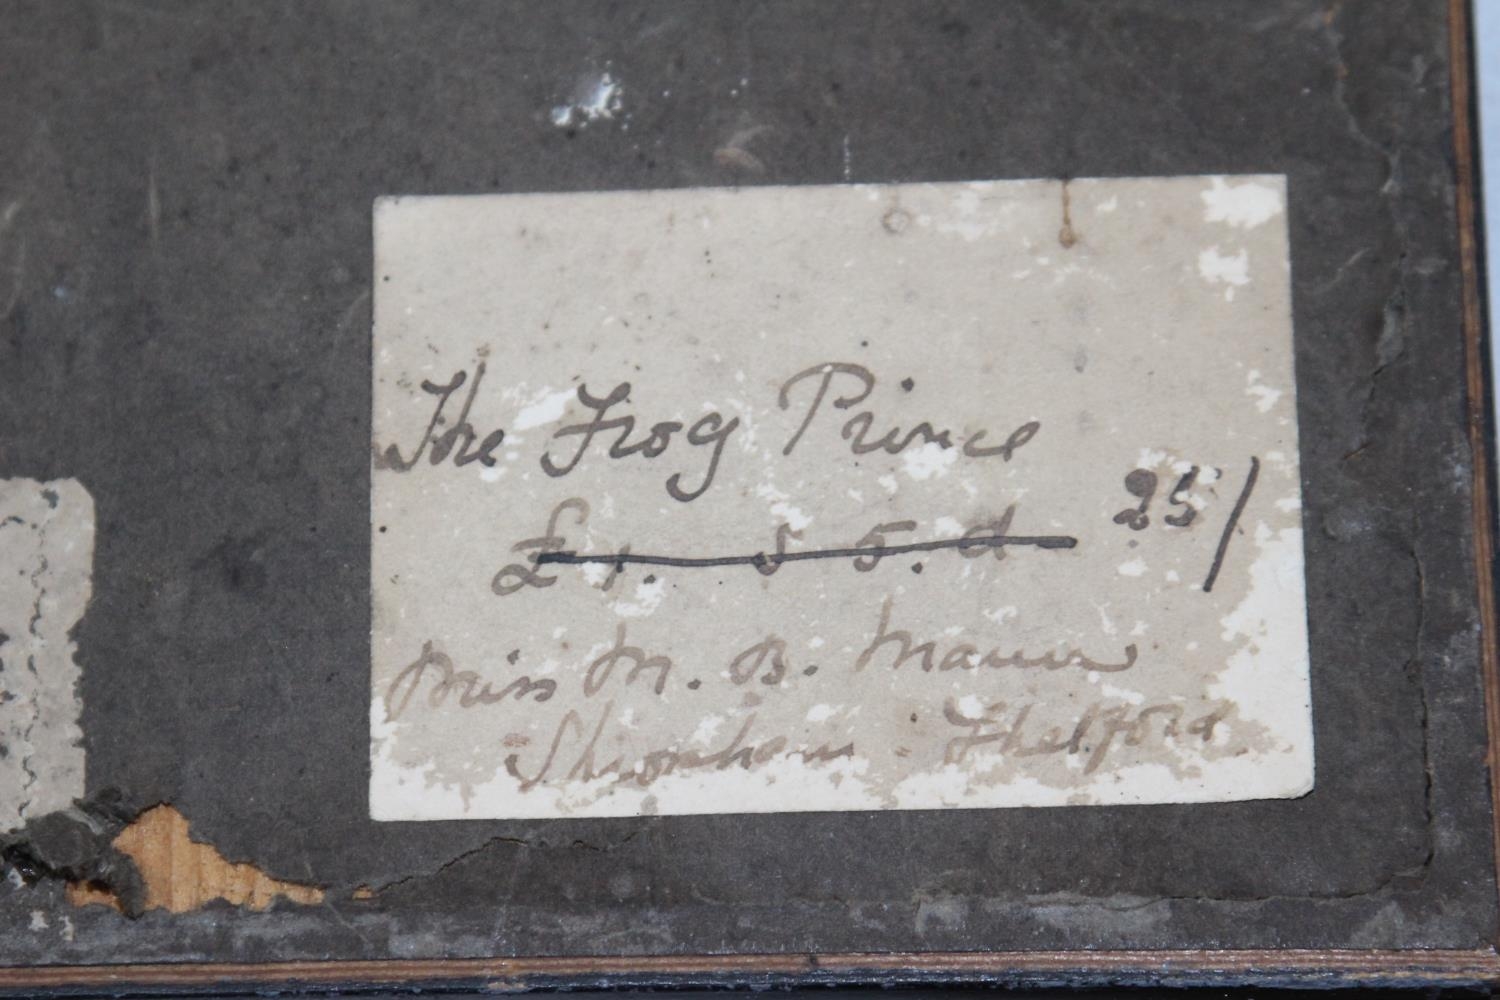 The Frog Prince
£1. S 5. d 25/
Miss M. B. Mann
Shropham. Thetford